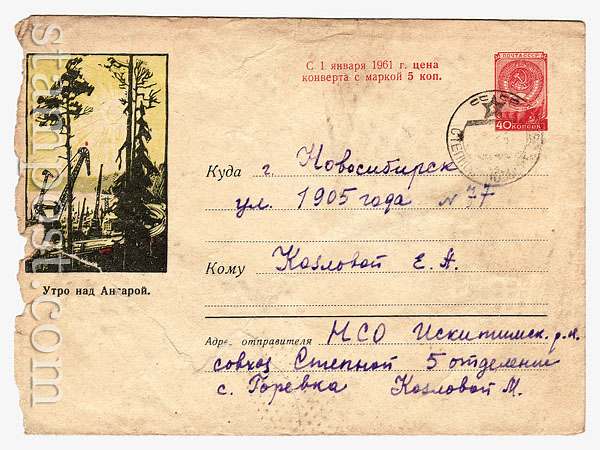 С 1 января 1961 г. цена
конверта с маркой 5 коп.
ПОЧТА СССР
40 КОПЕЕК
Куда г. Новосибирск
ул. 1905 года № 77
Кому Козловой Е. А.
Утро над Ангарой.
Адрес отправителя НСО Искитимск. р.н.
совхоз Степной 5 отделение
с. Горевка Козловой М.
stamppost.com